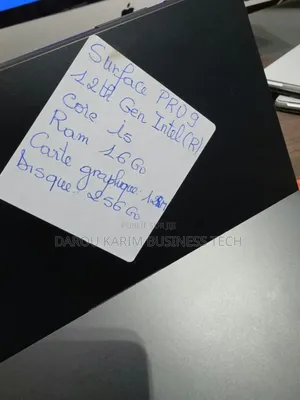 Surface PRO 9
12th Gen Intel(R)
Core i5
Ram 16Go
Carte graphique
Disque: 256Go
DAROU KARIM BUSINESS TECH